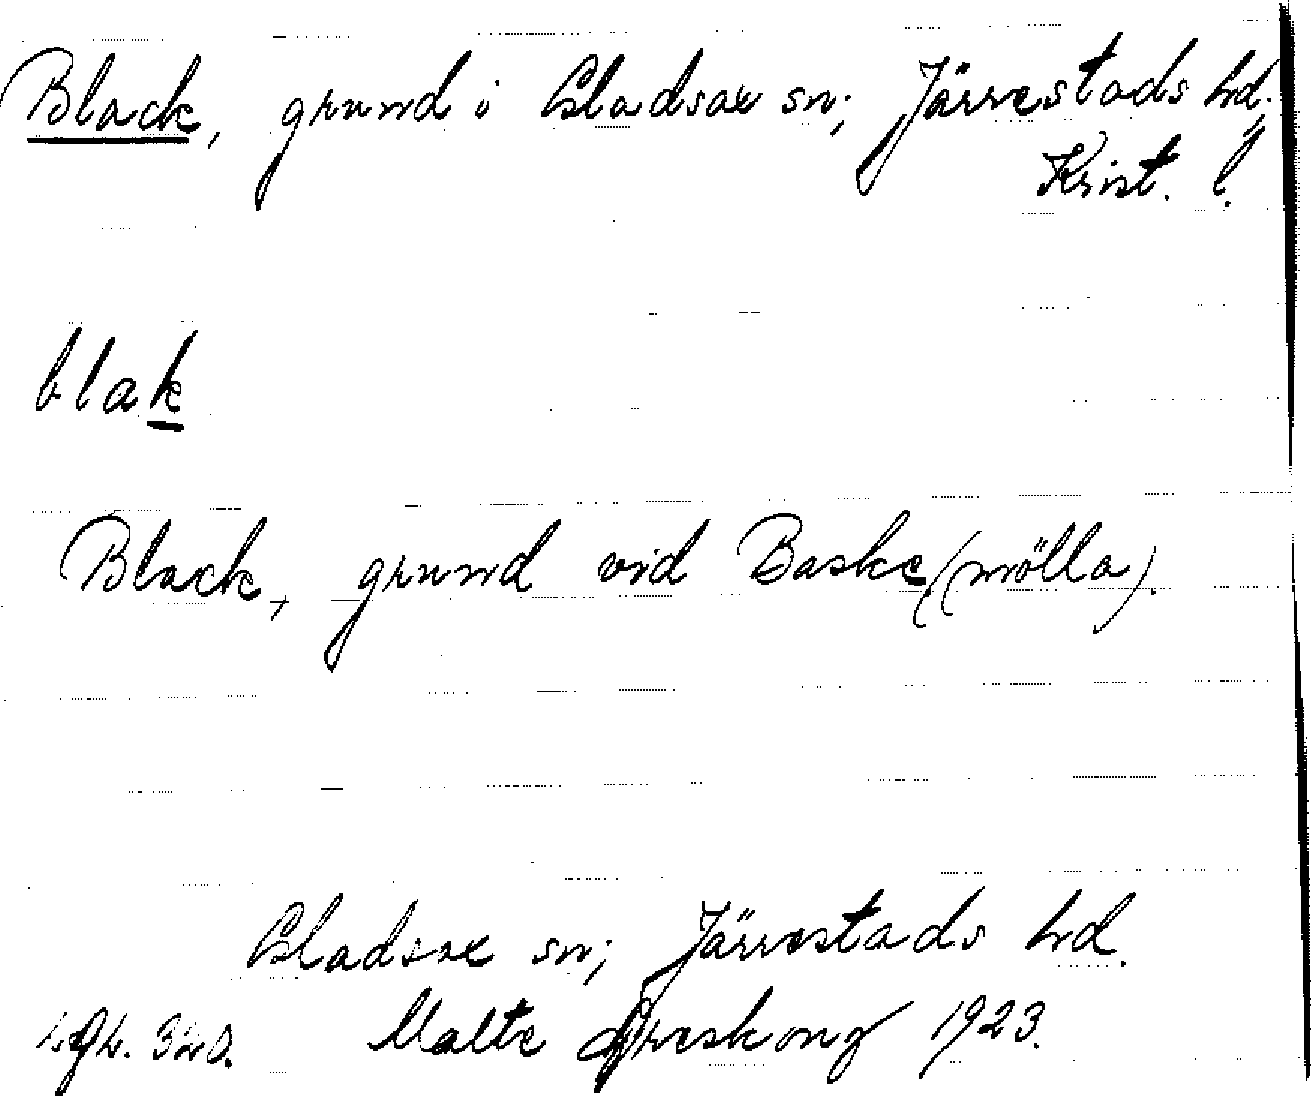 Black, grund i Gladsax sn; Järrestads hd.
Krist. l.
blak
Black, grund vid Baske(mölla).
Gladsax sn; Järrestads hd.
Malte 1923.